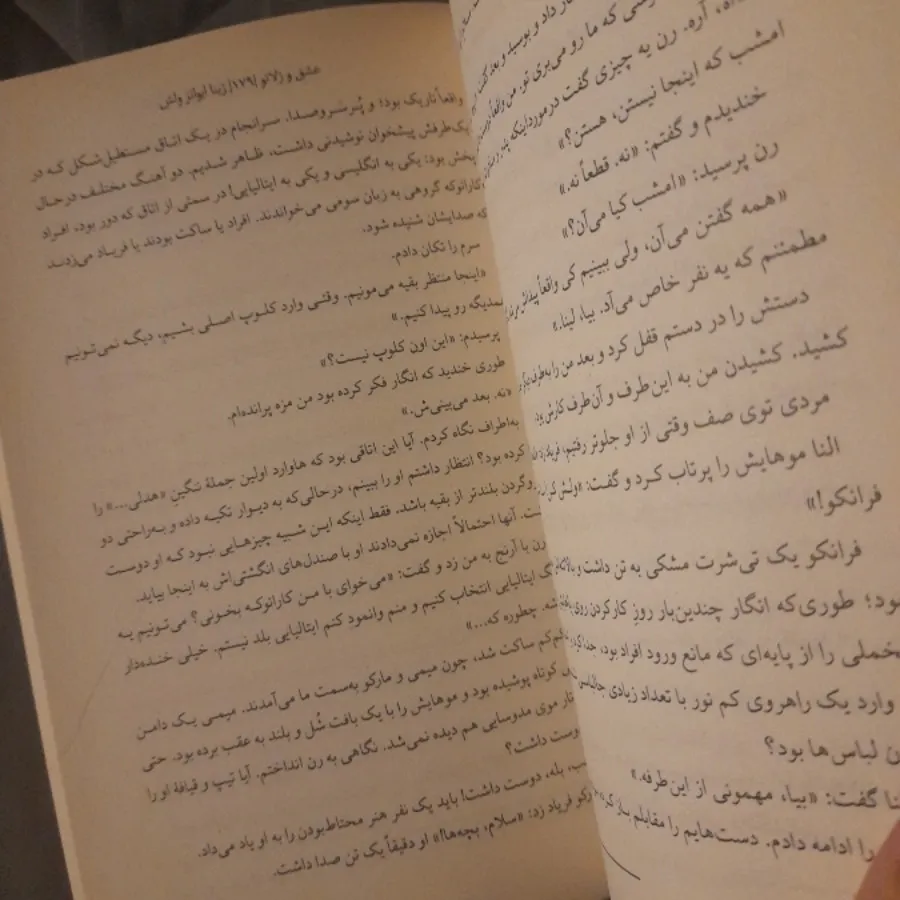 داد و بوسید و بعد گفت
که ما رو می‌بری تو. من واقعاً
آره. رن یه چیزی گفت در مورد اینکه
امشب که اینجا نیستن، هستن؟»
خندیدم و گفتم: «نه. قطعاً نه.»
رن پرسید: «امشب کیا می‌آن؟»
«همه گفتن می‌آن، ولی ببینیم کی واقعاً
مطمئنم که یه نفر خاص می‌آد. بیا، لینا.»
دستش را در دستم قفل کرد و بعد من را به‌طرف
کشید. کشیدن من به این‌طرف و آن‌طرف کارش بود.
مردی توی صف وقتی از او جلوتر رفتیم، فریاد زد
النا موهایش را پرتاب کرد و گفت: «ولش کن
فرانکو!»
فرانکو یک تی‌شرت مشکی به تن داشت و
طوری‌که انگار چندین‌بار روزِ کارکردن روی
را از پایه‌ای که مانع ورود افراد بود، جدا کرد
وارد یک راهروی کم نور با تعداد زیادی
لباس‌ها بود؟
گفت: «بیا، مهمونی از این‌طرفه.»
را ادامه دادم. دست‌هایم را مقابلم
عشق و ژلاتو |۱۷۹| ژینا ایوانز ولش
واقعاً تاریک بود؛ و پُر سَر و صدا. سرانجام در یک اتاق مستطیل‌شکل که در
یک‌طرفش پیشخوان نوشیدنی داشت، ظاهر شدیم. دو آهنگ مختلف درحال
پخش بود: یکی به انگلیسی و یکی به ایتالیایی! در سمتی از اتاق که دور بود، افراد
کارائوکه گروهی به زبان سومی می‌خواندند. افراد یا ساکت بودند یا فریاد می‌زدند
که صدایشان شنیده شود.
سرم را تکان دادم.
«اینجا منتظر بقیه می‌مونیم. وقتی وارد کلوپ اصلی بشیم، دیگه نمی‌تونیم
همدیگه رو پیدا کنیم.»
پرسیدم: «این اون کلوپ نیست؟»
طوری خندید که انگار فکر کرده بود من مزه پرانده‌ام.
«نه. بعد می‌بینی‌ش.»
به‌اطراف نگاه کردم. آیا این اتاقی بود که هاوارد اولین جملهٔ ننگینِ «هدلی...» را
کرده بود؟ انتظار داشتم او را ببینم، درحالی‌که به دیوار تکیه داده و به‌راحتی دو
گردن بلندتر از بقیه باشد. فقط اینکه این شبیه چیزهایی نبود که او دوست
آنها احتمالاً اجازه نمی‌دادند او با صندل‌های انگشتی‌اش به اینجا بیاید.
رن با آرنج به من زد و گفت: «می‌خوای با من کارائوکه بخونی؟ می‌تونیم یه
ایتالیایی انتخاب کنیم و منم وانمود کنم ایتالیایی بلد نیستم. خیلی خنده‌دار
شه. چطوره که...»
کم‌کم ساکت شد، چون میمی و مارکو به‌سمت ما می‌آمدند. میمی یک دامن
کوتاه پوشیده بود و موهایش را با یک بافت شُل و بلند به عقب برده بود. حتی
تار موی مدوسایی هم دیده نمی‌شد. نگاهی به رن انداختم. آیا تیپ و قیافهٔ او را
دوست داشت؟
بله، دوست داشت! باید یک نفر هنر محتاط‌بودن را به او یاد می‌داد.
مارکو فریاد زد: «سلام، بچه‌ها!» او دقیقاً یک تن صدا داشت.